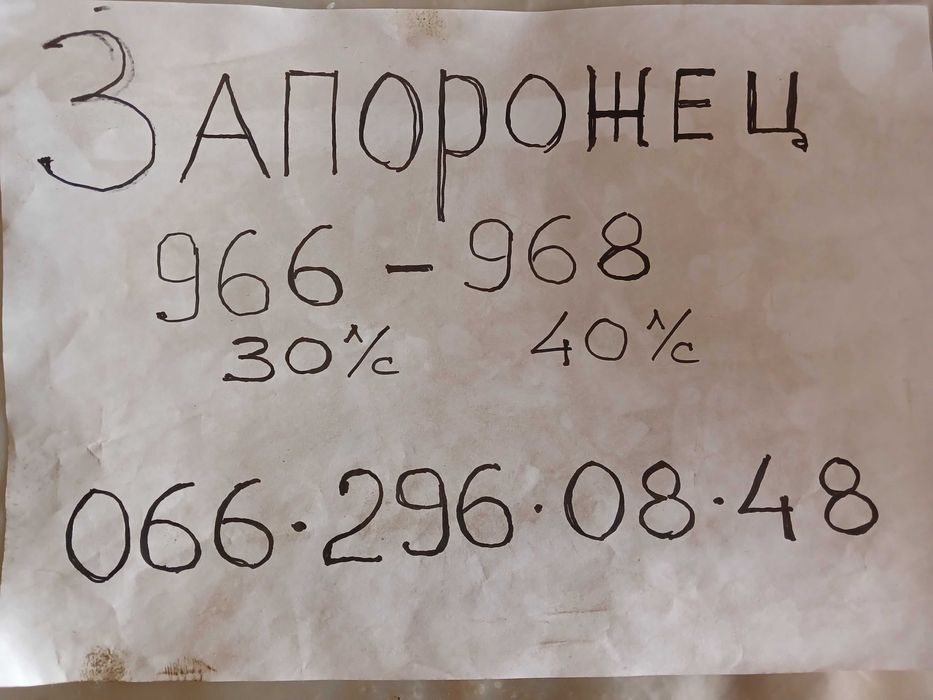 ЗАПОРОЖЕЦ
966 - 968
30 л/с 40 л/с
066·296·08·48